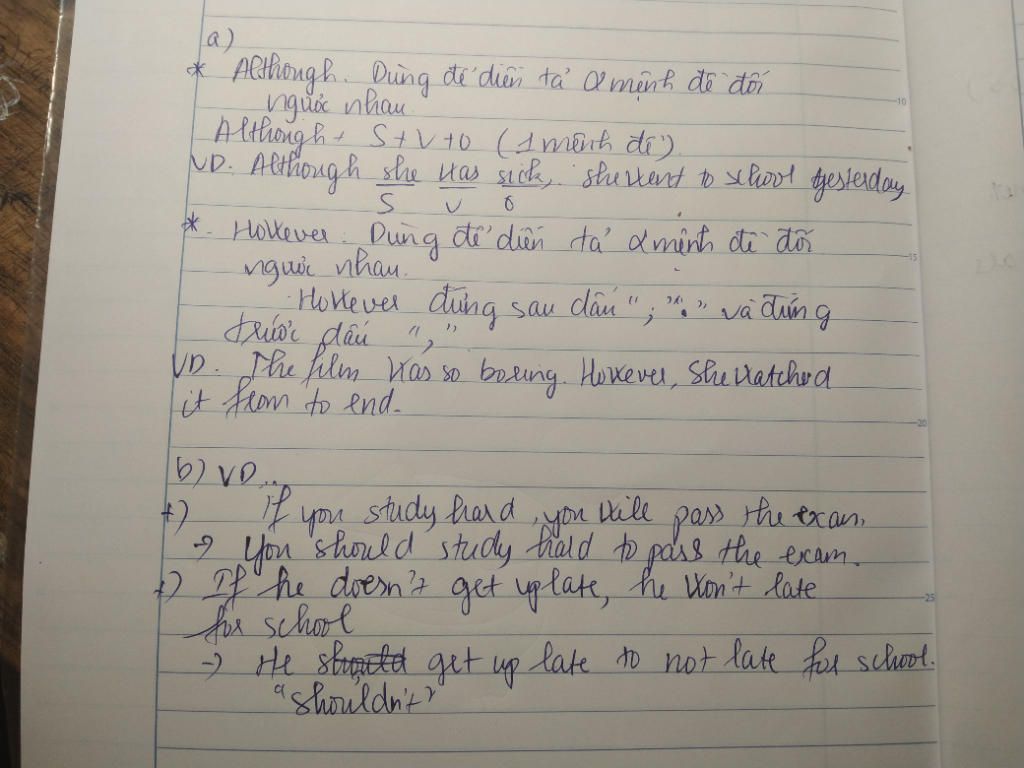 a)
* Although. Dùng để diễn tả 2 mệnh đề đối
ngược nhau
Although + S + V + O (1 mệnh đề)
VD. Although she was sick, she went to school yesterday
S V O
*. However: Dùng để diễn tả 2 mệnh đề đối
ngược nhau.
However đứng sau dấu ";" "." và đứng
trước dấu ","
VD. The film was so boring. However, she watched
it from to end.
b) VD...
+) If you study hard, you will pass the exam.
→ You should study hard to pass the exam.
+) If he doesn't get up late, he won't late
for school
→ He should get up late to not late for school.
"shouldn't"